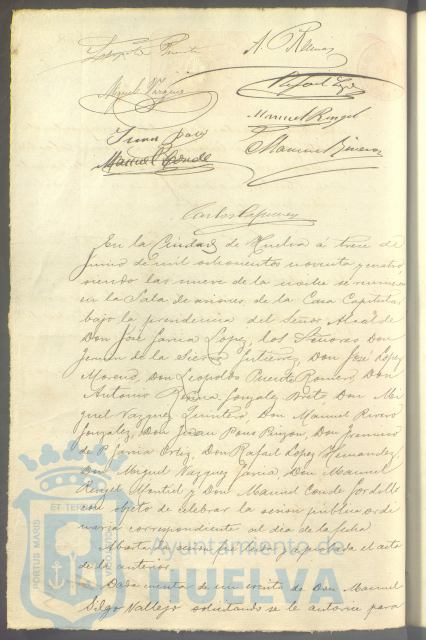 Leopoldo Puente
A. Reina
Miguel Vázquez
Rafael López
Manuel Rengel
Juan Pous
Manuel Conde
Manuel
En la Ciudad de Huelva á trece de
Junio de mil ochocientos noventa y cuatro
siendo las nueve de la noche se reunieron
en la Sala de sesiones de la Casa Capitular
bajo la presidencia del Señor Alcalde
Don José Garcia Lopez, los Señores Don
de la Sierra Gutierrez, Don José Lopez
Moreno, Don Leopoldo Puente Romero, Don
Antonio Reina Gonzalez Prieto, Don Mi
guel Vazquez Quintero Don Manuel Rivero
Gonzalez, Don Juan Pous Pinzon, Don Francisco
de P. Garcia Ortiz, Don Rafael Lopez Hernandez
Don Miguel Vazquez Garcia, Don Manuel
Rengel Montiel y Don Manuel Conde Gordillo
con objeto de celebrar la sesión pública ordi
naria correspondiente al dia de la fecha
Abierta la sesion fue leida y aprobada el acta
de la anterior.
Dada cuenta de un escrito de Don Manuel
Silgo Vallejo solicitando se le autorice para
PORTUS MARIS ET TERRAE
Ayuntamiento de
HUELVA